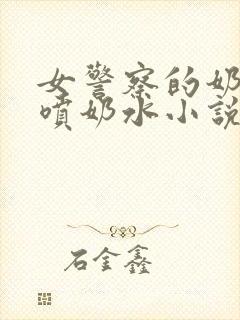 女警察的奶
噴奶水小説
石金鑫